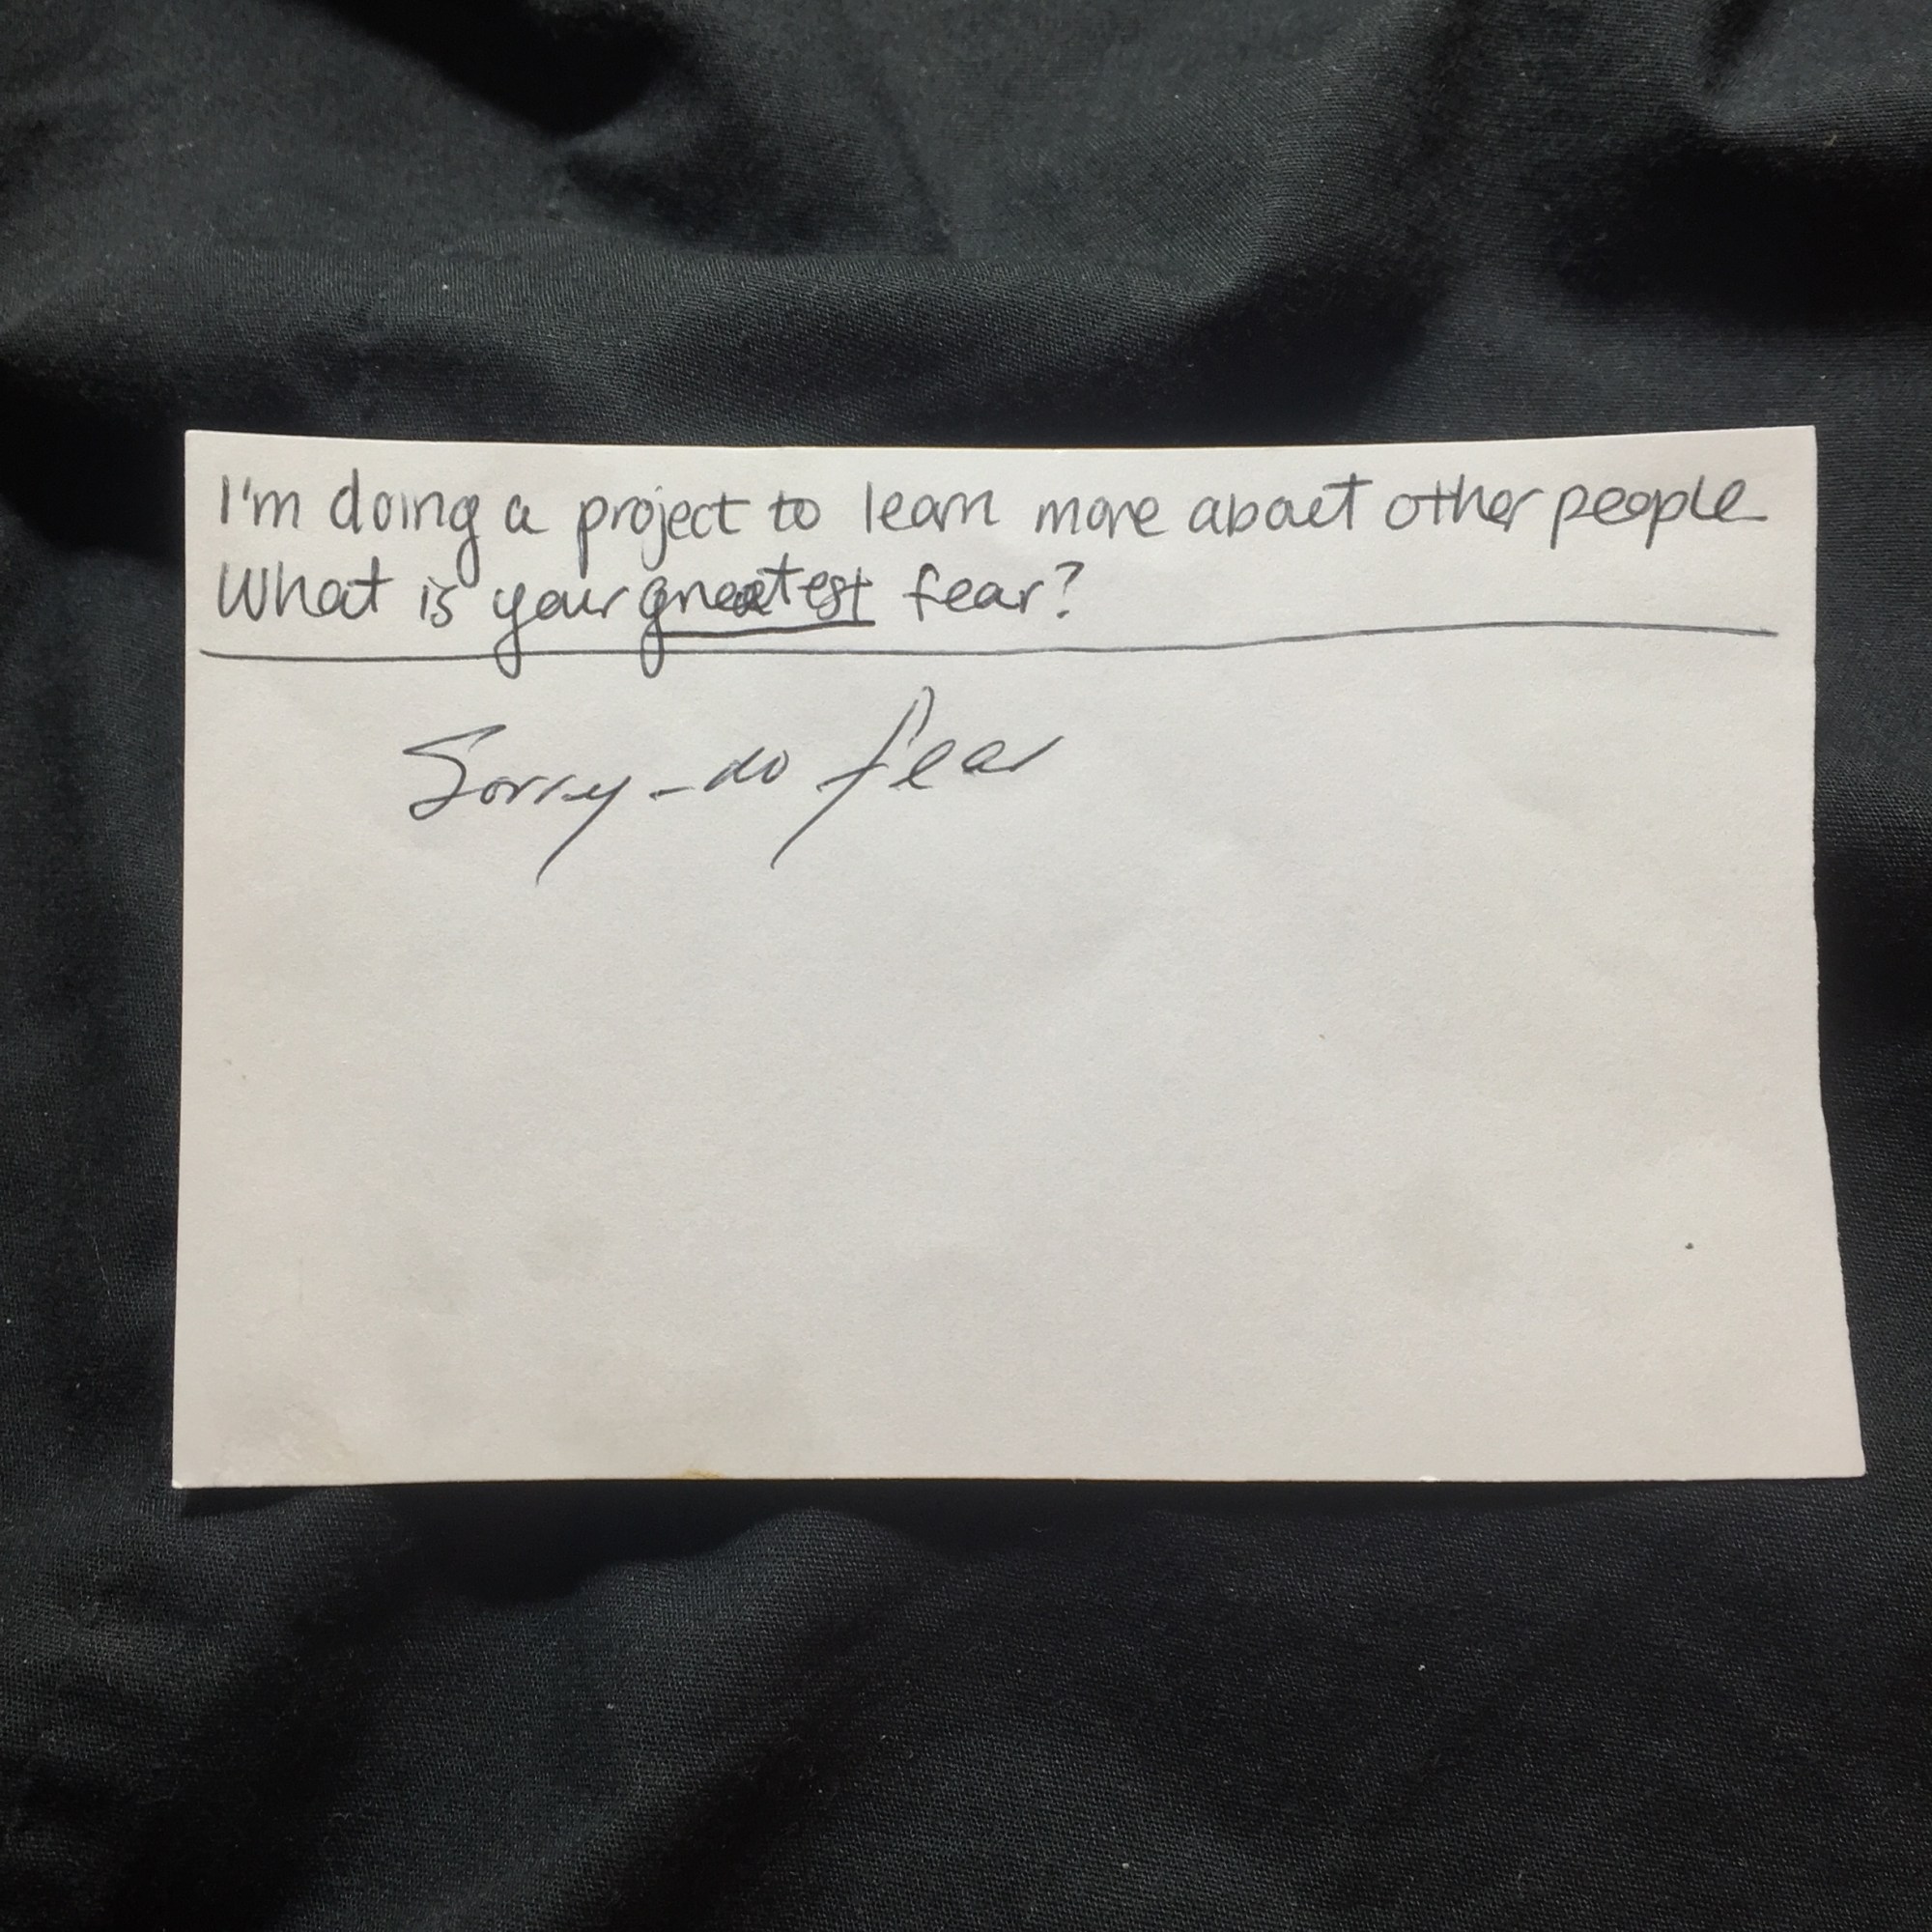 I'm doing a project to learn more about other people
What is your greatest fear?
Sorry - no fear